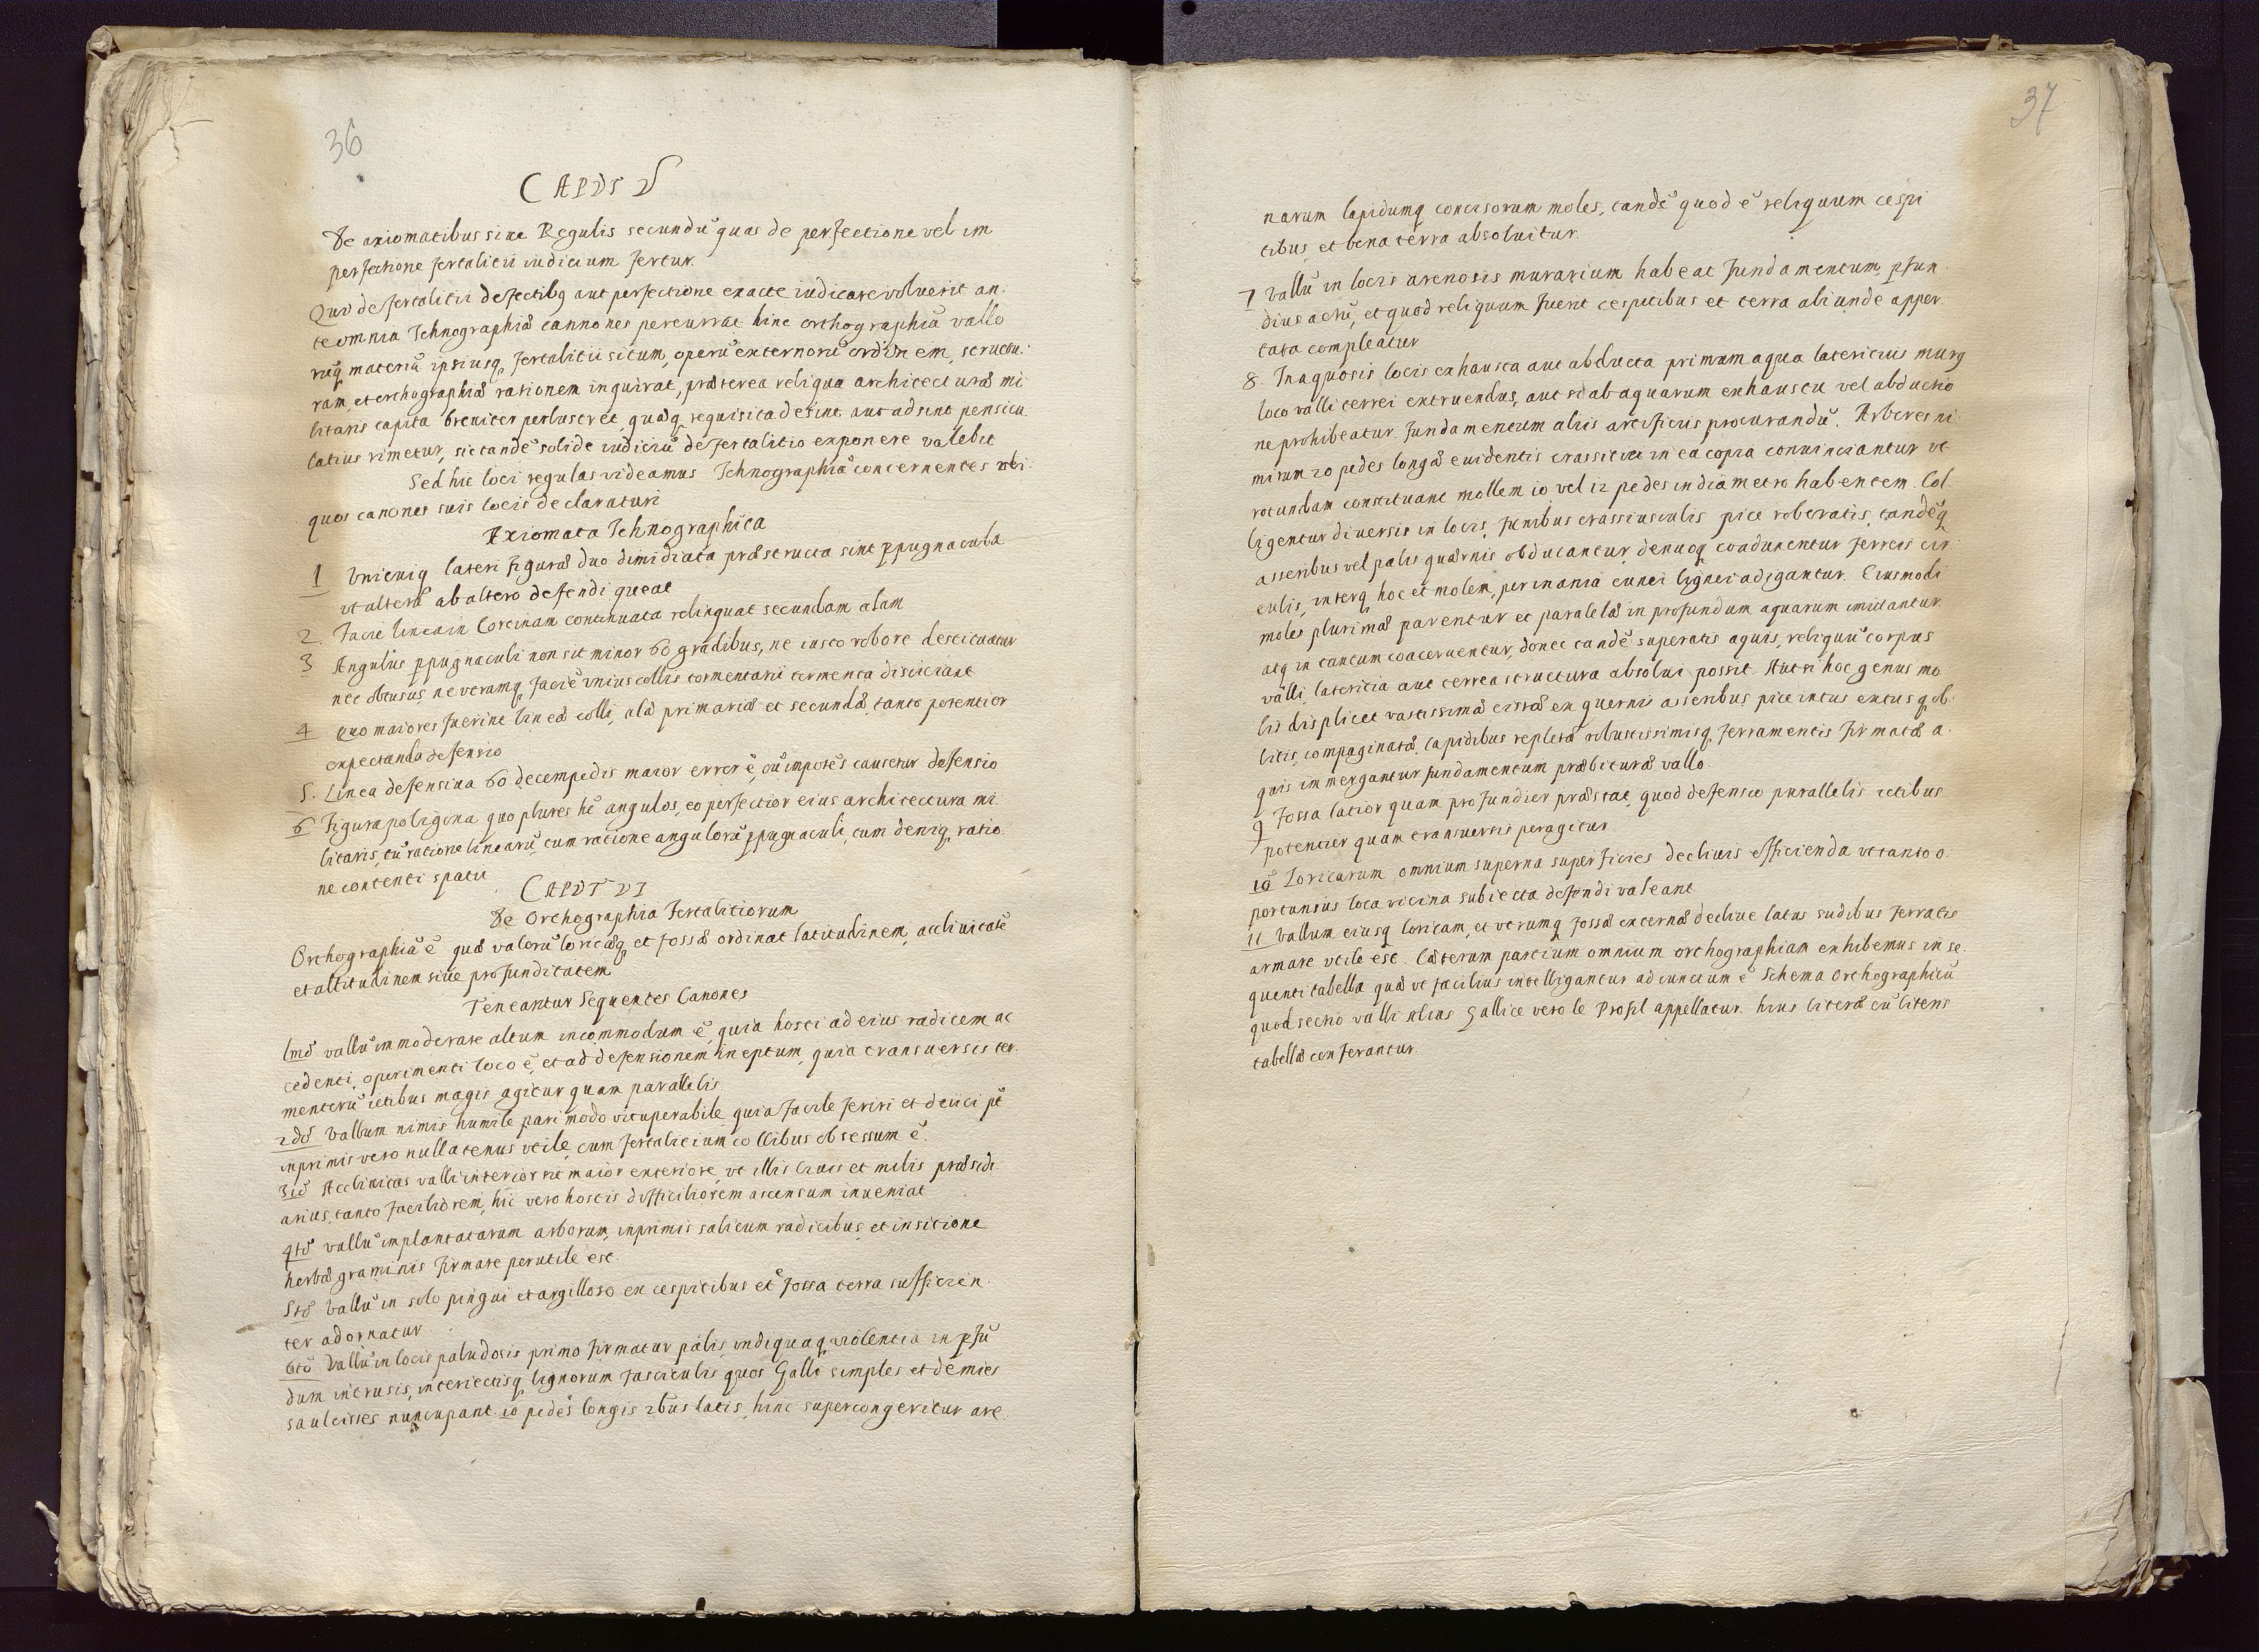 36
CAPUT V
De axiomatibus sive Regulis secundũ quas de perfectione vel im
perfectione fortalitii iudicium fertur.
Quo de fortalitii defectibq aut perfectione exacte iudicare voluerit an.
te omnia Ichnographiæ cannones percurrat hinc orthographiã vallo
rũq materiã ipsiusq fortalitii situm, operũ externorũ ordinem, structu.
ram, et orthographiæ rationem inquirat, præterea reliqua architecturæ mi
litaris capita breviter perlustret, quæq requisita desint aut adsint pensicu.
latius rimetur, sic tandẽ solide iudiciũ de fortalitio exponere valebit
Sed hic loci regulas videamus Ichnographiã concernentes
quos canones suis locis declaraturi
Axiomata Ichnographica
1 Unicuiq lateri figuræ duo dimidiata præstructa sint ppugnacula
ut alterũ ab altero defendi queat
2 Facie linea in Cortinam continuata relinquat secundam alam
3 Angulus ppugnaculi non sit minor 60 gradibus, ne iusto robore destituatur
nec obtusus, ne utramq faciẽ unius collis tormentarii tormenta disiiciant
4 Quo maiores fuerint lineæ colli, alæ primariæ et secundæ, tanto potentior
expectanda defensio
5. Linea defensiva 60 decempedis maior error ẽ, cũ impotẽs causetur defensio
6 Figura poligona quo plures hẽ angulos, eo perfectior eius architectura mi.
litaris, tũ ratione linearũ, tum ratione angulorũ ppugnaculi, tum deniq ratio.
ne contenti spatii
CAPUT VI
De Orthographia Fortalitiorum
Orthographia ẽ quæ valorũ loricæq et fossæ ordinat latitudinem, acclivitatẽ
et altitudinem sive profunditatem
Teneantur Sequentes Canones
1mõ vallũ immoderate altum incommodum ẽ, quia hosti ad eius radicem ac
cedenti operimenti loco ẽ, et ad defensionem ineptum, quia transversis tor.
mentorũ ictibus magis agitur quam parallelis
2dõ Vallum nimis humile pari modo vituperabile quia facile feriri et deiici pẽ
inprimis vero nullatenus utile, cum fortalitium collibus obsessum ẽ.
3iõ Acclivitas valli interior sit maior exteriore, ut illis civis et milis præsidi
arius, tanto faciliorem, hic vero hostis difficiliorem ascensum inveniat
4tõ vallũ implantatarum arborum, inprimis salicum radicibus, et insitione
herbæ graminis firmare perutile est.
5tõ Vallũ in solo pingui et argilloso ex cespitibus et fossa terra sufficien
ter adornatur
6tõ Vallũ in locis paludosis primo firmatur palis undiquaq violentia in pfũ
dum intrusis, interiectisq lignorum fasciculis quos Galli simples et demies
saulcisses nuncupant 10 pedẽs longis 2bus latis, hinc supercongeritur are
37
narum lapidumq concisorum moles, tandẽ quod ẽ reliquum cespi
tibus, et bona terra absoluitur.
7 Vallũ in locis arenosis murarium habeat fundamentum, pfun
dius actũ, et quod reliquum fuerit cespitibus et terra aliunde appor.
tata compleatur
8. In aquosis locis exhausta aut abducta primum aqua latericius murq
loco valli terrei extruendus, aut si ab aquarum exhaustu vel abductio
ne prohibeatur. Fundamentum aliis artificiis procurandũ. Arbores ni
mirum 20 pedes longæ evidentis crassitiei in ea copia convinciantur ut
rotundam constituant mollem 10 vel 12 pedes in diametro habentem. Col.
ligentur diversis in locis, funibus crassiusculis pice roboratis, tandẽq
asseribus vel palis quærnis obducantur, denuoq coadunentur ferreis cir
culis, interq hoc et molem, per inania cunei lignei adigantur. Eiusmodi
moles plurimæ parentur et paralelæ in profundum aquarum imittantur.
atq in tantum coacerventur, donec tandẽ superatis aquis, reliquũ corpus
valli, latericia aut terrea structura absolui possit. Aut si hoc genus mo
lis displicet vastissimæ cistæ ex quernis asseribus pice intus extusq ob.
litis, compaginatæ, lapidibus repletæ robustissimisq ferramentis firmatæ a.
quis immergantur fundamentum præbituræ vallo.
9 Fossa latior quam profundior præstat, quod defensio parallelis ictibus
potentior quam transversis peragitur
10 Loricarum omnium superna superficies declivis efficienda ut tanto o.
portunius loca vicina subiecta defendi valeant
11 Vallum eiusq loricam, et utrumq fossæ externæ declive latus sudibus ferratis
armare utile est. Cæterum partium omnium orthographiam exhibemus in se
quenti tabella quæ ut facilius intelligantur adiunctum ẽ Schema Orthographicũ
quod sectio valli alias Gallice vero le Profil appellatur. huius literæ cũ literis
tabellæ conferantur.